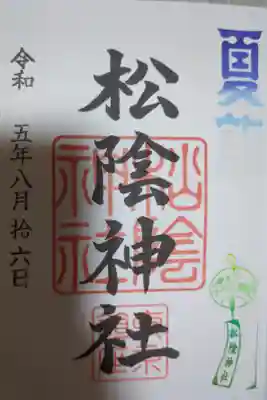 夏
松陰神社
松陰神社
松陰神社
令和 五年八月拾六日